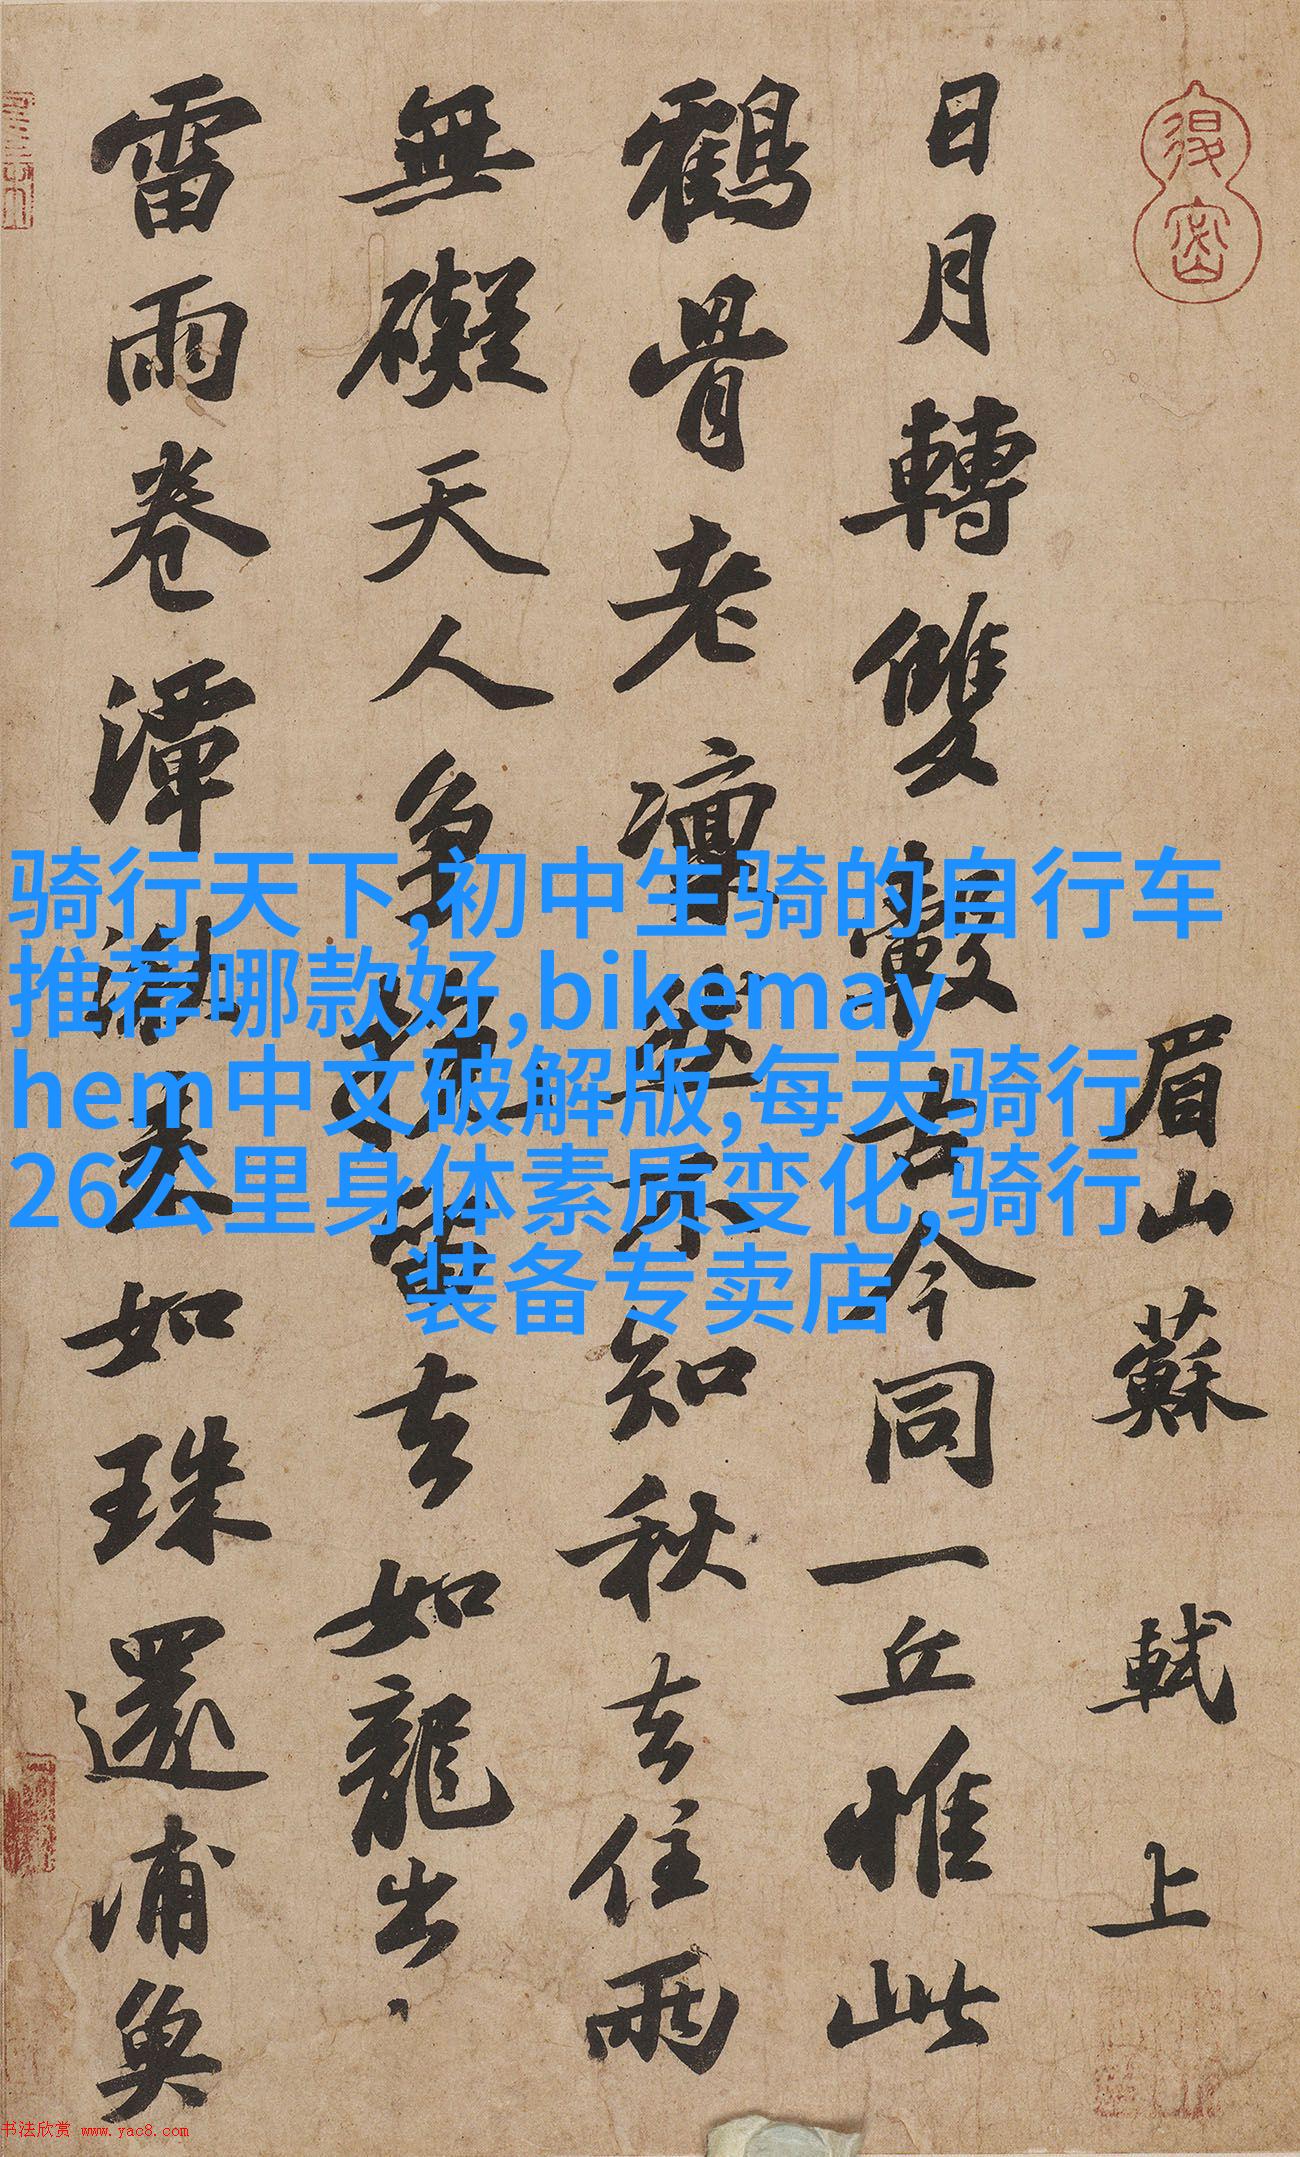 眉山蘇軾上
日月轉雙轂古今同一丘惟此
鶴骨老凛然不知秋去住兩
無礙天人争挽留去如龍出
雷雨卷潭湫来如珠還浦魚
骑行天下,初中生骑的自行车
推荐哪款好,bikemay
hem中文破解版,每天骑行
26公里身体素质变化,骑行
装备专卖店
书法欣赏 www.yac8.com